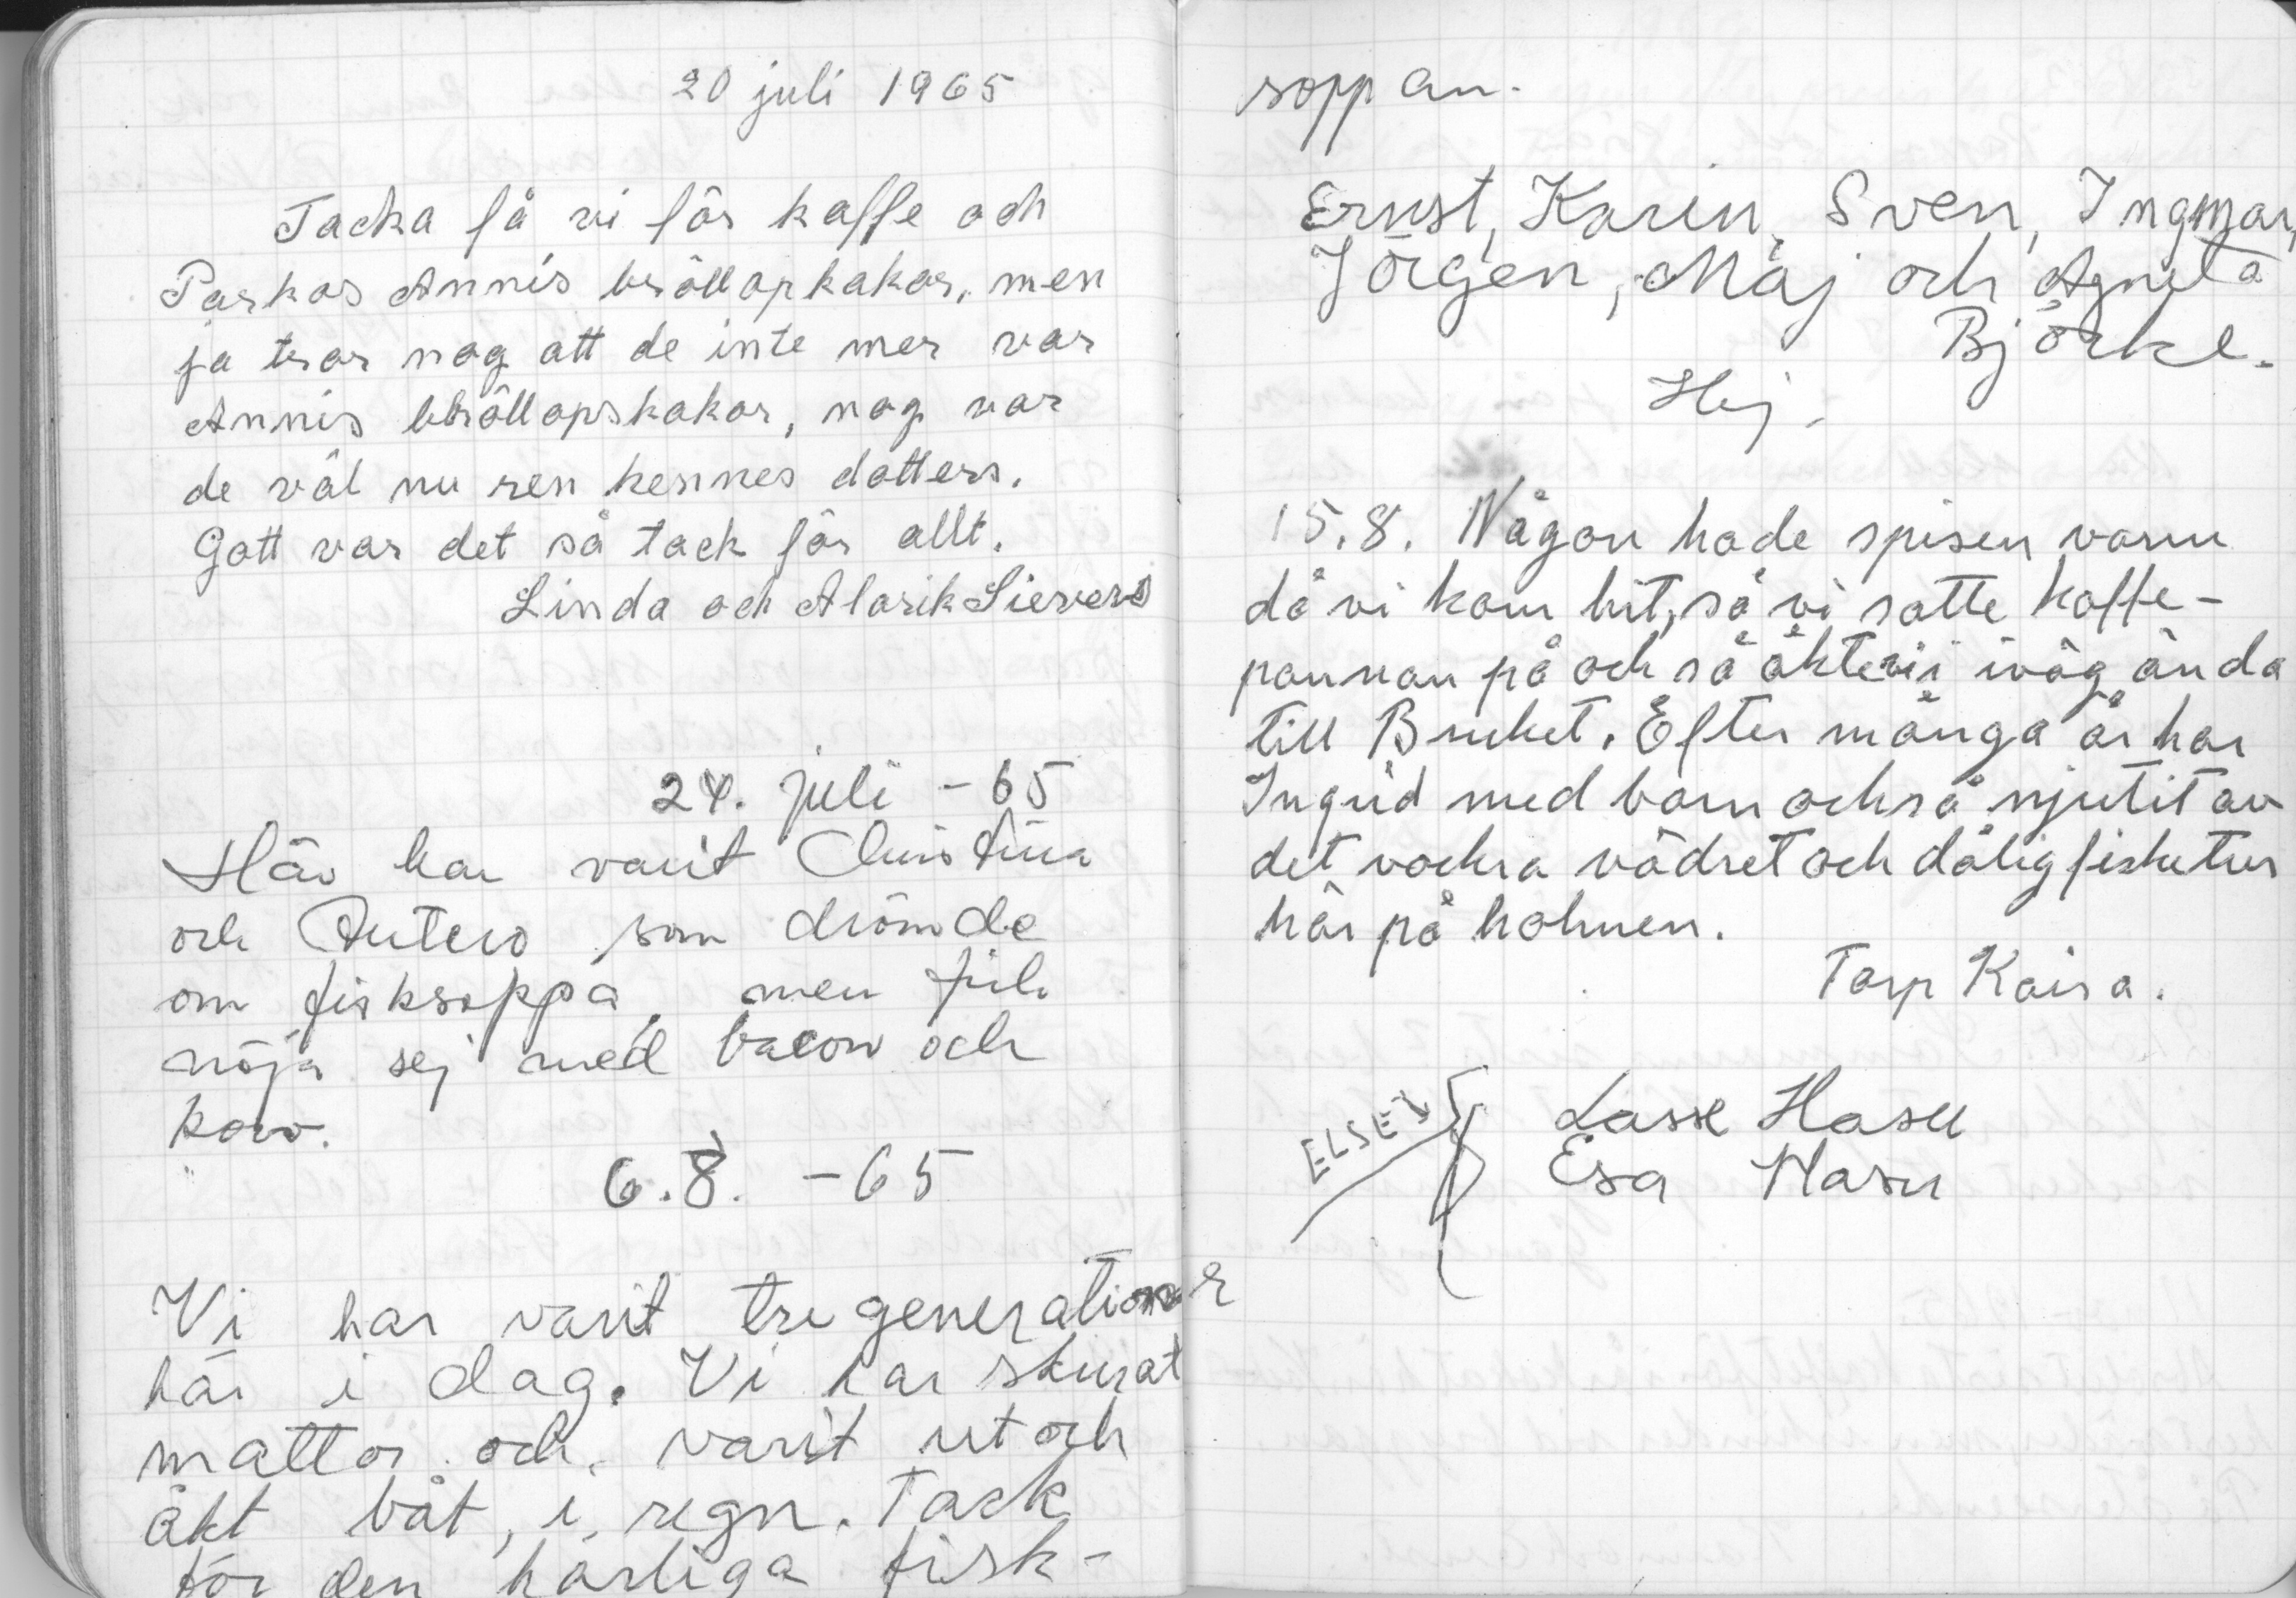 20 juli 1965
Tacka få vi för kaffe och
Parkas Annis bröllopkakor, men
ja tror nog att de inte mer var
Annis bröllopskakor, nog var
de väl nu ren hennes dotters.
Gott var det så tack för allt.
Linda och Alarik Sievers
24. juli -65
Här har varit Christina
och Antero som drömde
om fisksoppa, men fick
nöja sej med bacon och
korv.
6.8. -65
Vi har varit tre generationer
här i dag. Vi har skurat
mattor och varit ut och
åkt båt, i regn. Tack
för den härliga fisk-
soppan.
Ernst, Karin, Sven, Ingmar,
Jörgen, Maj och Agneta
Björkl.
Hej.
15.8. Någon hade spisen varm
då vi kom hit, så vi satte kaffe-
pannan på och så åkte vi iväg ända
till Bruket. Efter många år har
Ingrid med barn också njutit av
det vackra vädret och dålig fisketur
här på holmen.
Tarp Kaisa.
ELSE
Lasse Hasu
Esa Hasu